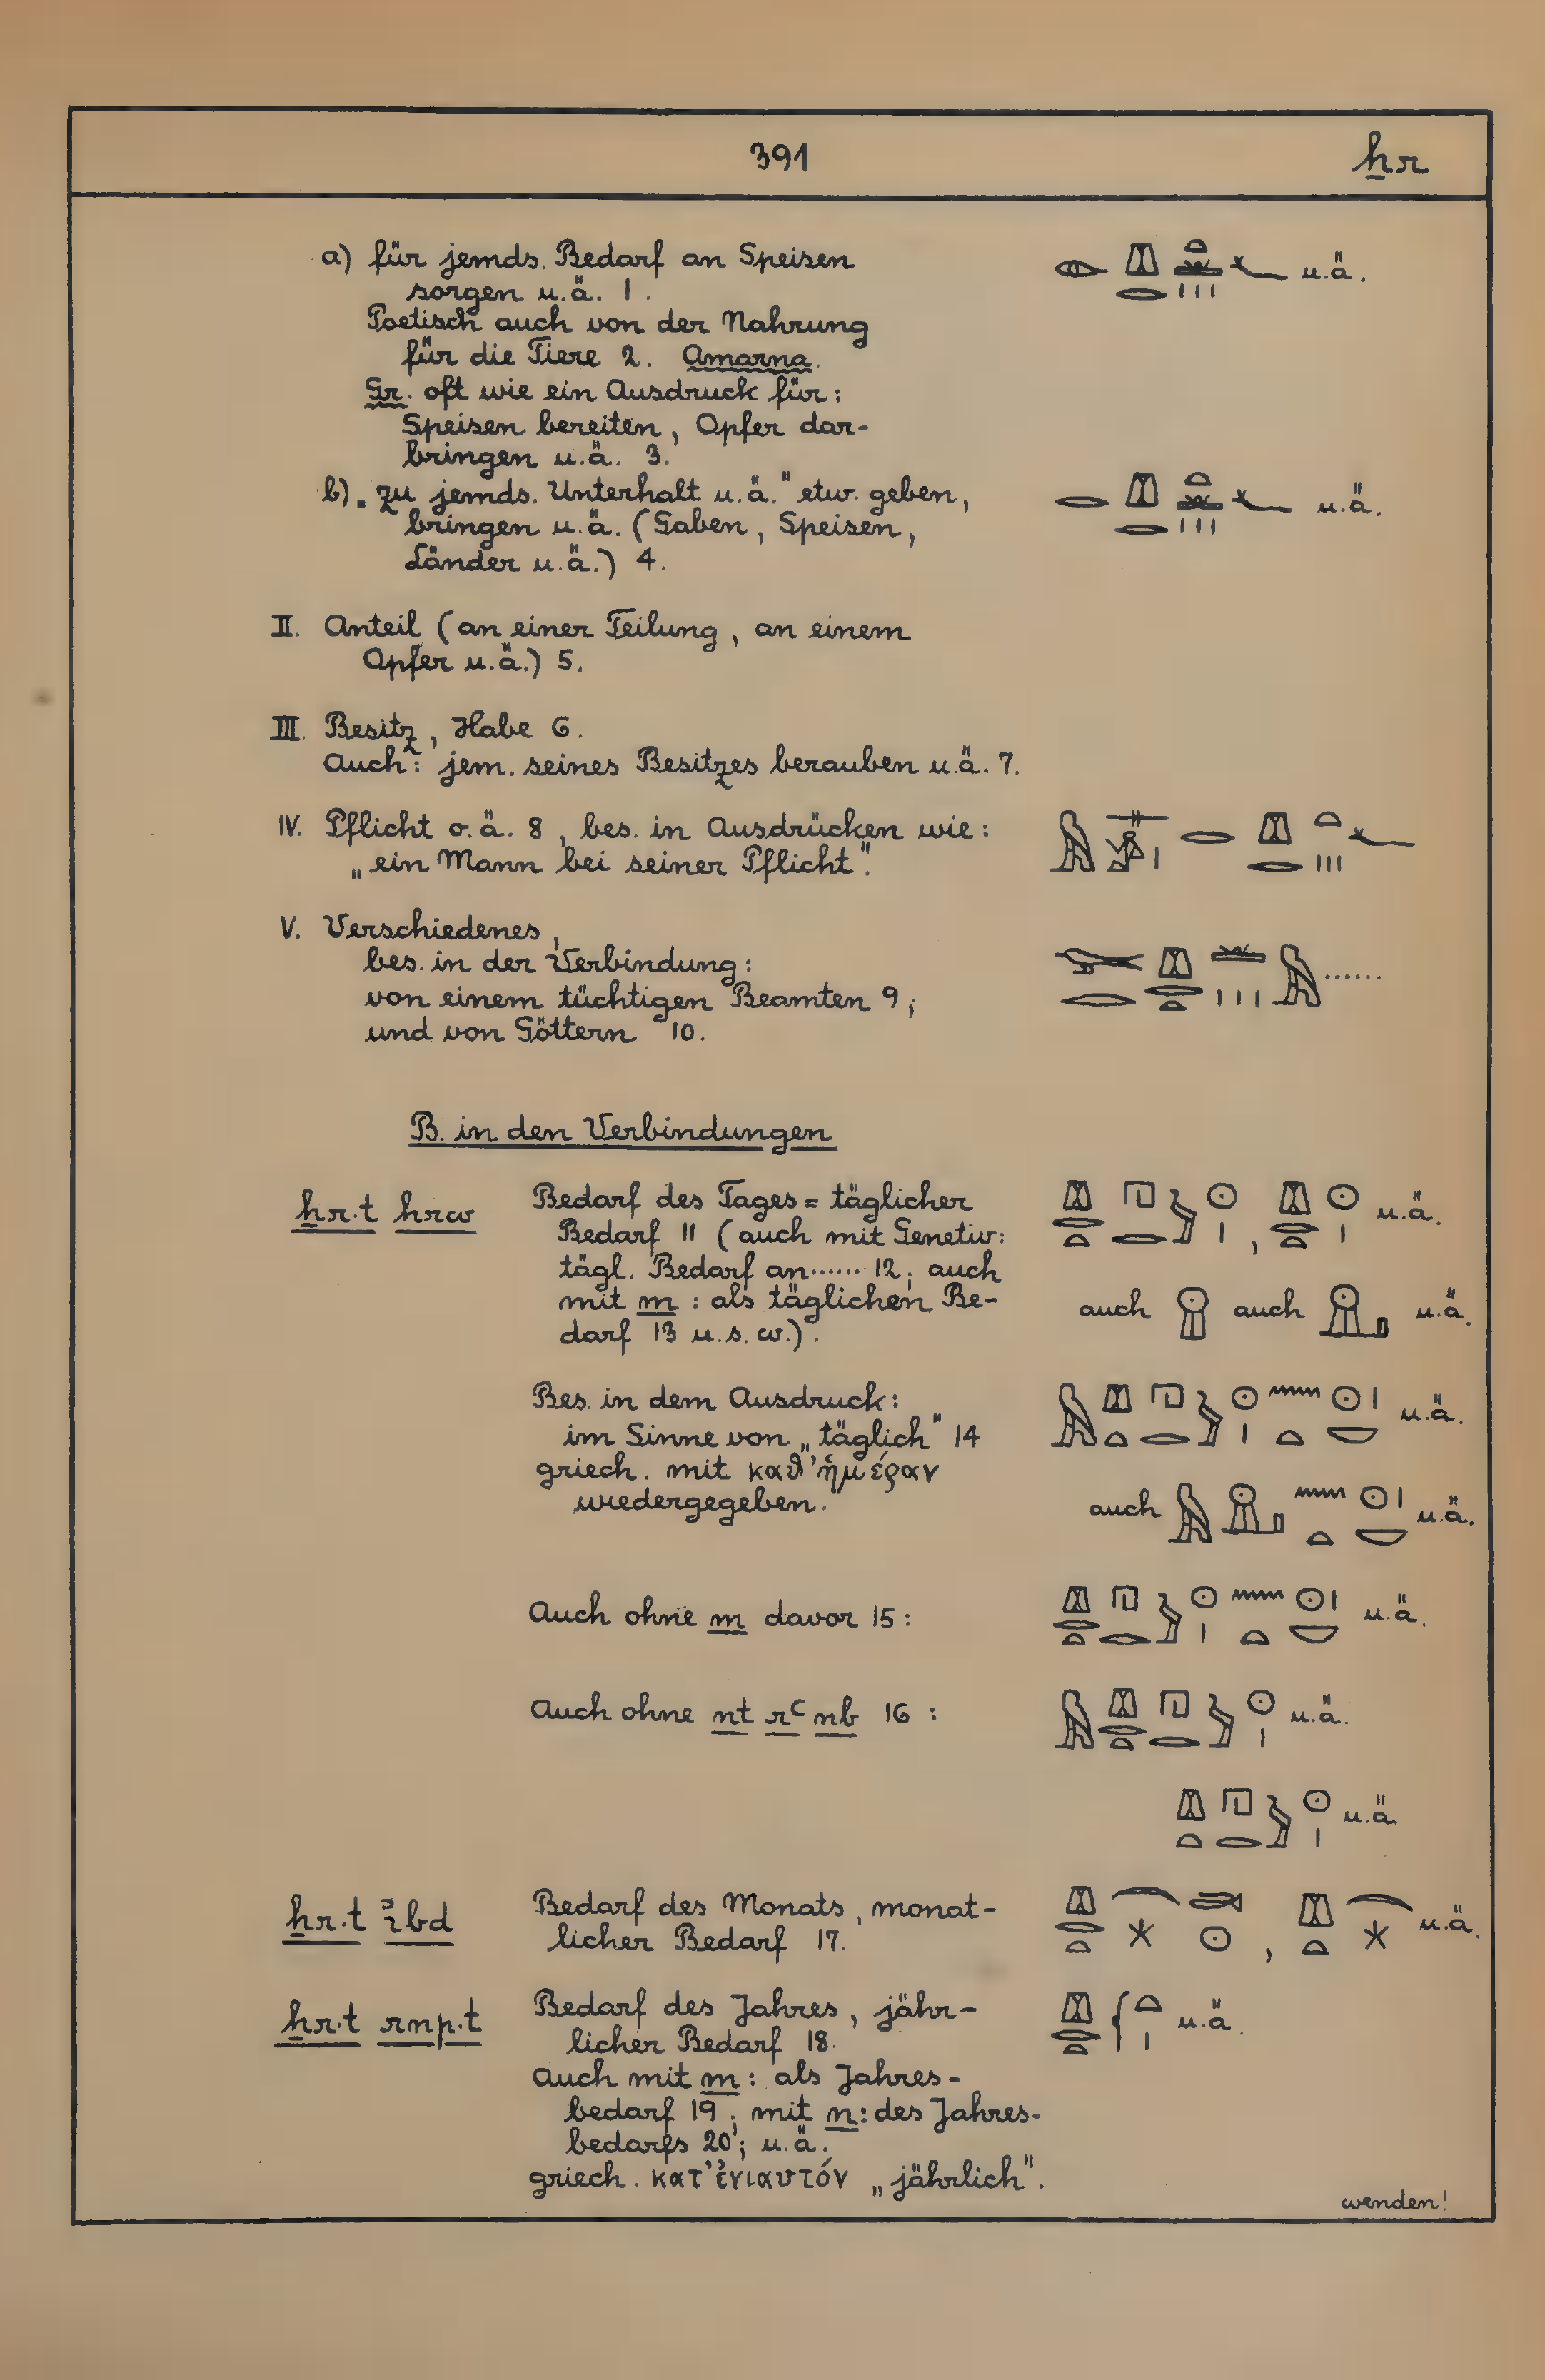 391
ẖr
a) für jemds. Bedarf an Speisen
sorgen u.ä. 1.
u.ä.
Poetisch auch von der Nahrung
für die Tiere 2. Amarna.
Gr. oft wie ein Ausdruck für:
Speisen bereiten, Opfer dar-
bringen u.ä. 3.
b) „zu jemds. Unterhalt u.ä." etw. geben,
bringen u.ä. (Gaben, Speisen,
Länder u.ä.) 4.
u.ä.
II. Anteil (an einer Teilung, an einem
Opfer u.ä.) 5.
III. Besitz, Habe 6.
Auch: jem. seines Besitzes berauben u.ä. 7.
IV. Pflicht o.ä. 8, bes. in Ausdrücken wie:
„ein Mann bei seiner Pflicht".
V. Verschiedenes,
bes. in der Verbindung:
von einem tüchtigen Beamten 9;
und von Göttern 10.
......
B. in den Verbindungen
ẖr.t hrw
Bedarf des Tages = täglicher
Bedarf 11 (auch mit Genetiv:
tägl. Bedarf an...... 12; auch
mit m : als täglichen Be-
darf 13 u.s.w.).
, u.ä.
auch auch u.ä.
Bes. in dem Ausdruck:
im Sinne von „täglich" 14
griech. mit καθ' ἡμέραν
wiedergegeben.
u.ä.
auch u.ä.
Auch ohne m davor 15:
u.ä.
Auch ohne nt rꜥ nb 16 :
u.ä.
u.ä.
ẖr.t ꜣbd
Bedarf des Monats, monat-
licher Bedarf 17.
, u.ä.
ẖr.t rnp.t
Bedarf des Jahres, jähr-
licher Bedarf 18.
Auch mit m: als Jahres-
bedarf 19; mit n: des Jahres-
bedarfs 20; u.ä.
griech. κατ' ἐνιαυτόν „jährlich".
u.ä.
wenden!